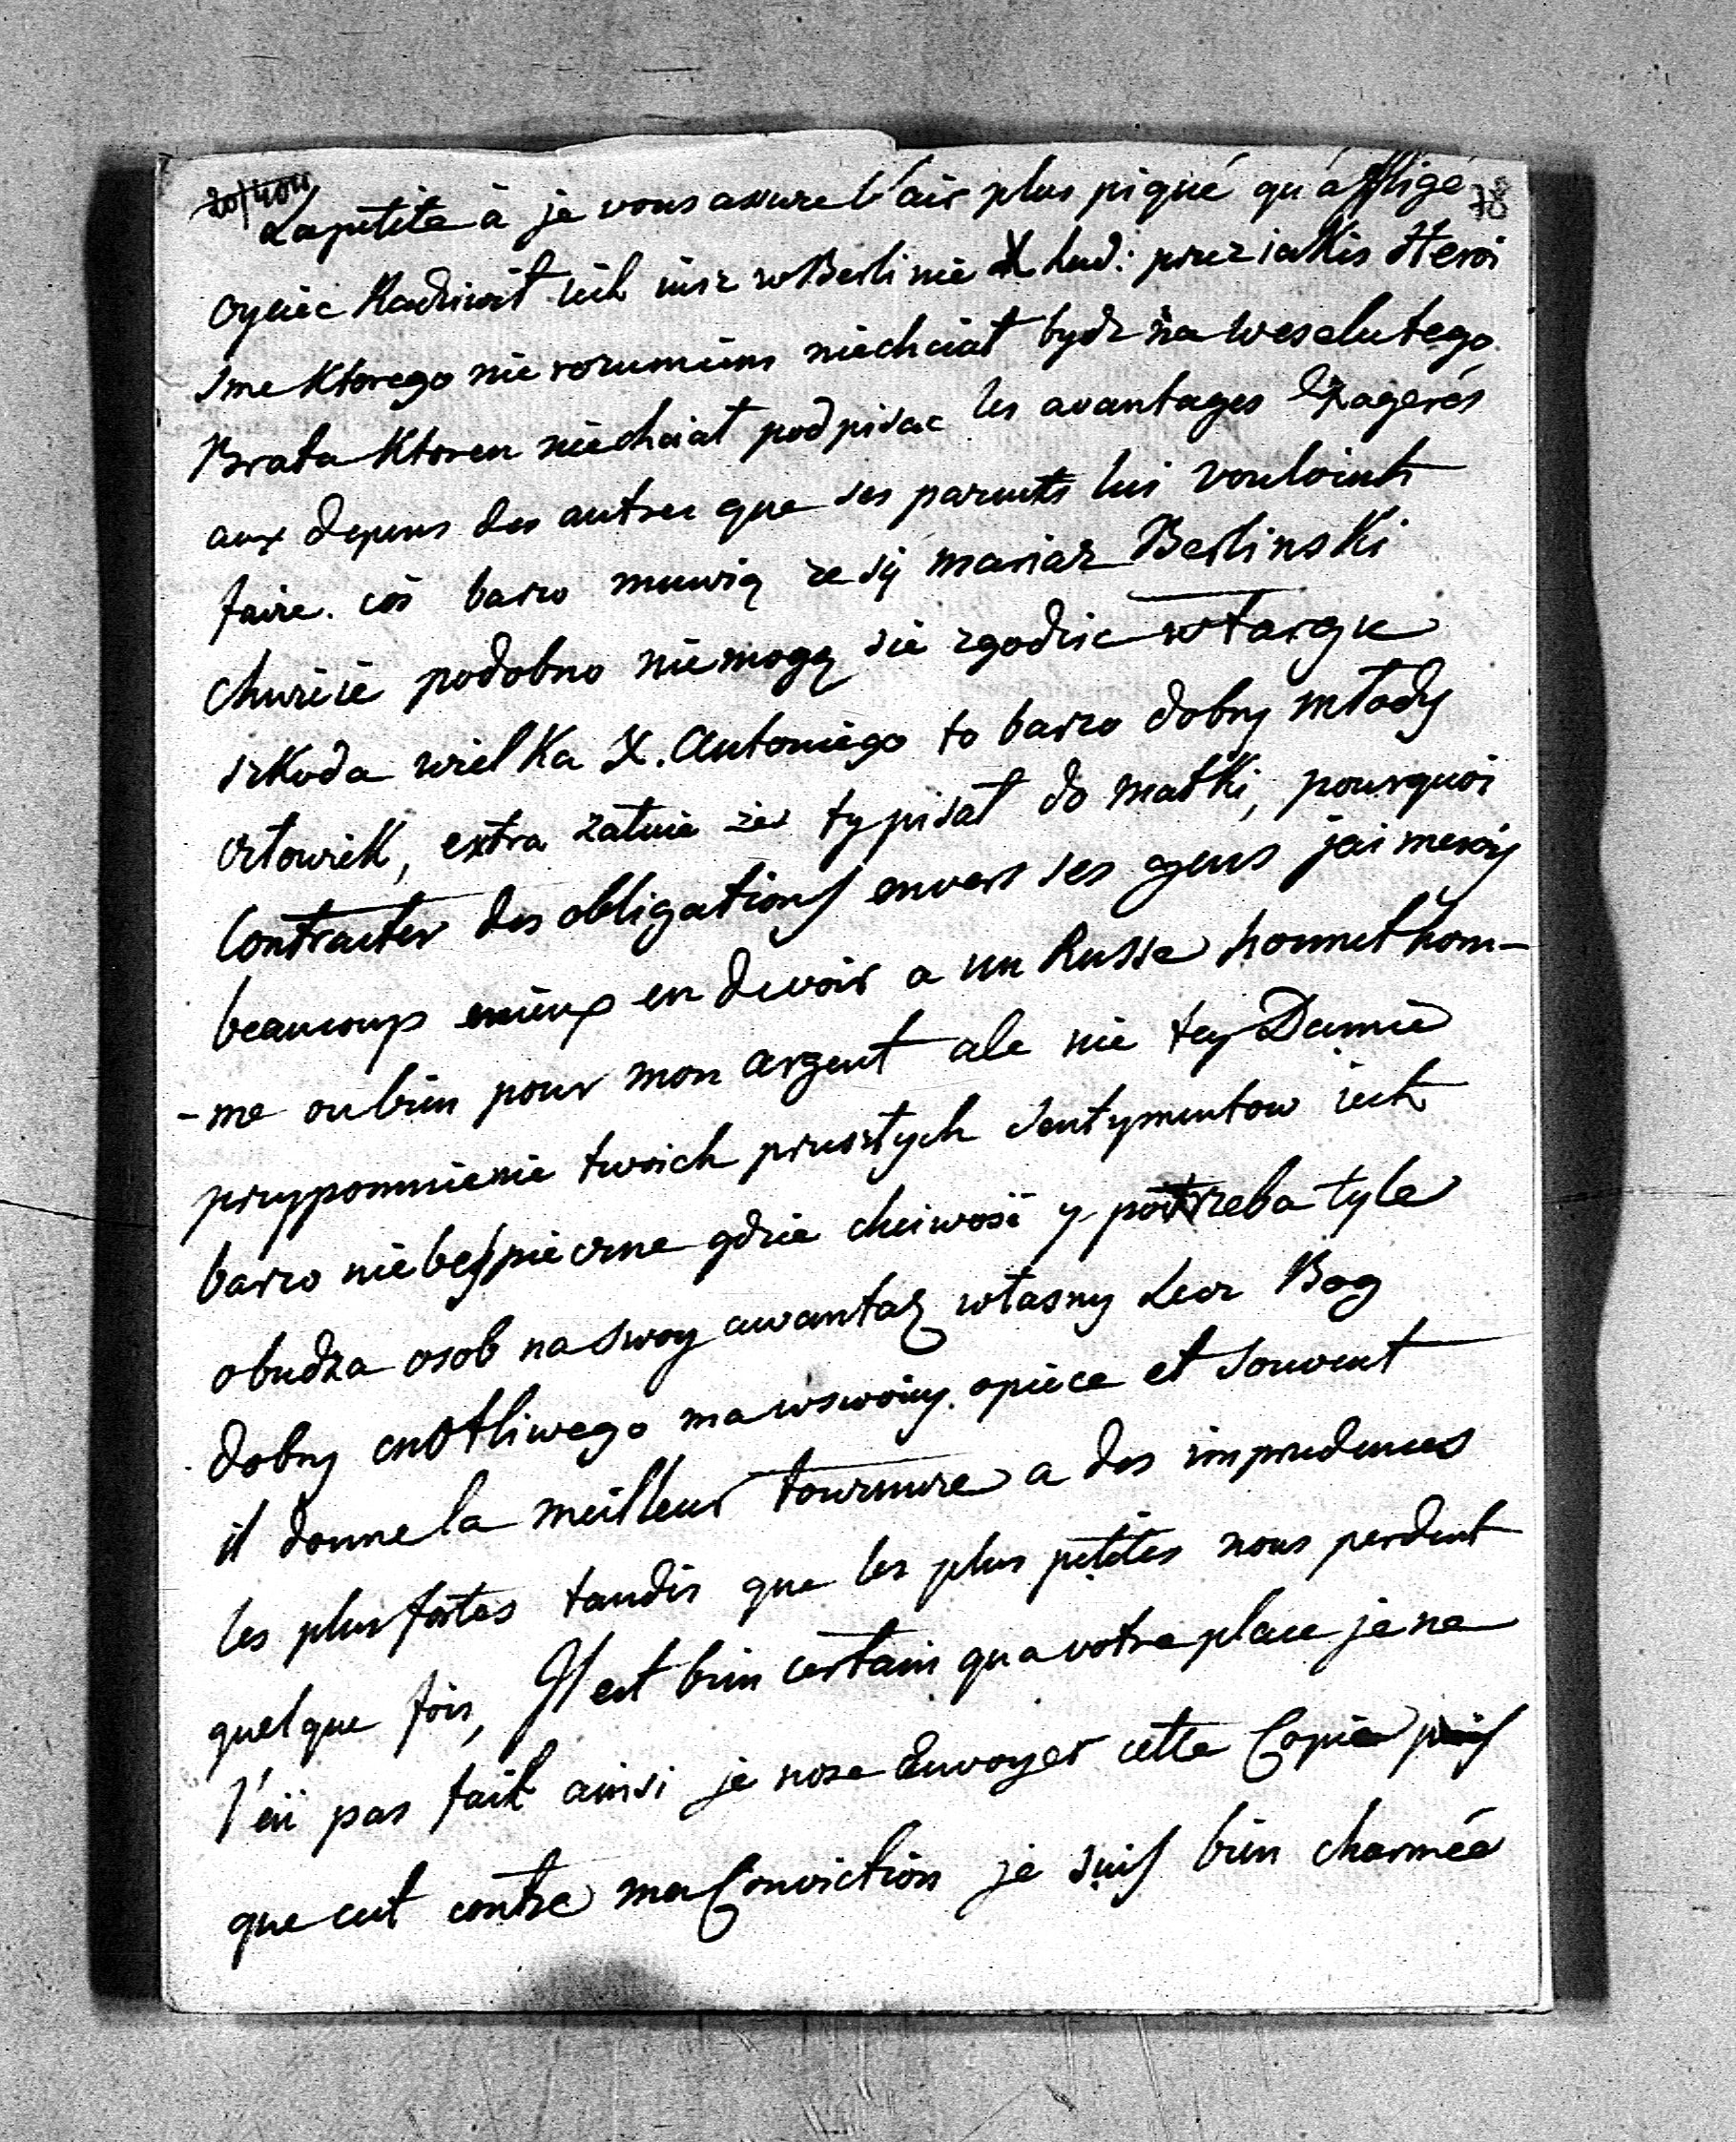 78
La petite à je vous assure l'air plus piqué qu'áffligé
Oyciec Radziwił iest iusz w Berlinie X Lud: przez iakis Heroi
sme Ktorego nie rozumiem niechciał bydz na Weselu tego
Brata Ktoren niechciał podpisac les avantages Exagerés
aux depens des autres que ses parents lui vouloient
faire. coś barzo muwią ze sy mariaz Berlinski
chwieie podobno niemogą sie zgodzic w targu
szkoda wielka X. Antoniego to barzo dobry młody
człowiek, extra załuie żes ty pisał do matki, pourquoi
Contracter des obligations envers ses gens j'aimerois
beaucoup mieux en devoir a un Russe honnet hom-
-me ou bien pour mon argent ale nie tey Damie
przypomnienie twoich przeszłych Sentymentow iest
barzo niebespieczne gdzie chciwosć y potrzeba tyle
obudza osob na swoy awantaz własny Lecz Bog
dobry cnotliwego ma w swoiey opiece et souvent
il donne la meilleur tournure a des imprudences
les plus fortes tandis que les plus petites nous perdent
quelque fois, Il est bien certain qu a votre place je ne
l'eü pas fait ainsi je nose Envoyer cette Copie puis
que cest contre ma Conviction je suis bien charmée